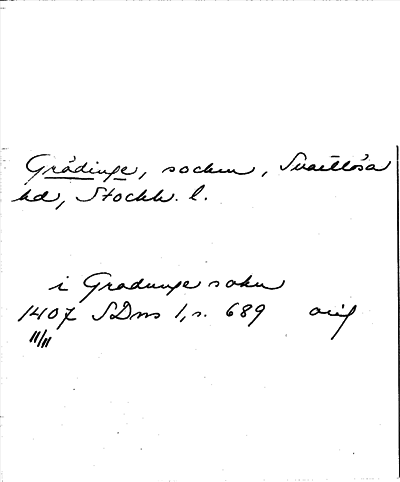 Grådinge, socken, Svartlösa
hd, Stockh. l.
i Gradunge sokn
1407 SDns 1, s. 689 orig
11/11